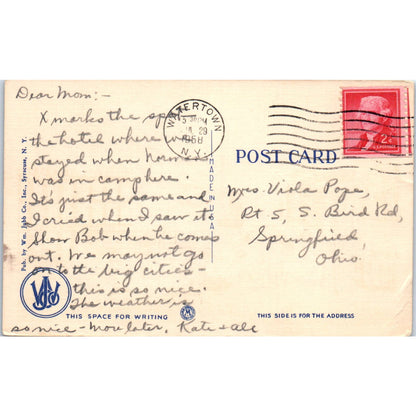 Dear Mom:-
X marks the spot
the hotel where we
stayed when Norman
was in camp here.
It's just the same and
I cried when I saw it.
Show Bob when he comes
out. We may not go
on to the big cities -
this is so nice.
The weather is
so nice - More later, Kate + Al
Pub. by Wm. Jubb Co., Inc., Syracuse, N. Y.
WJCo
THIS SPACE FOR WRITING
WATERTOWN
3 PM
JUL 29
1958
N.Y.
MADE IN U.S.A.
POST CARD
2¢
Mrs. Viola Pope,
Rt 5, S. Bird Rd,
Springfield,
Ohio.
THIS SIDE IS FOR THE ADDRESS